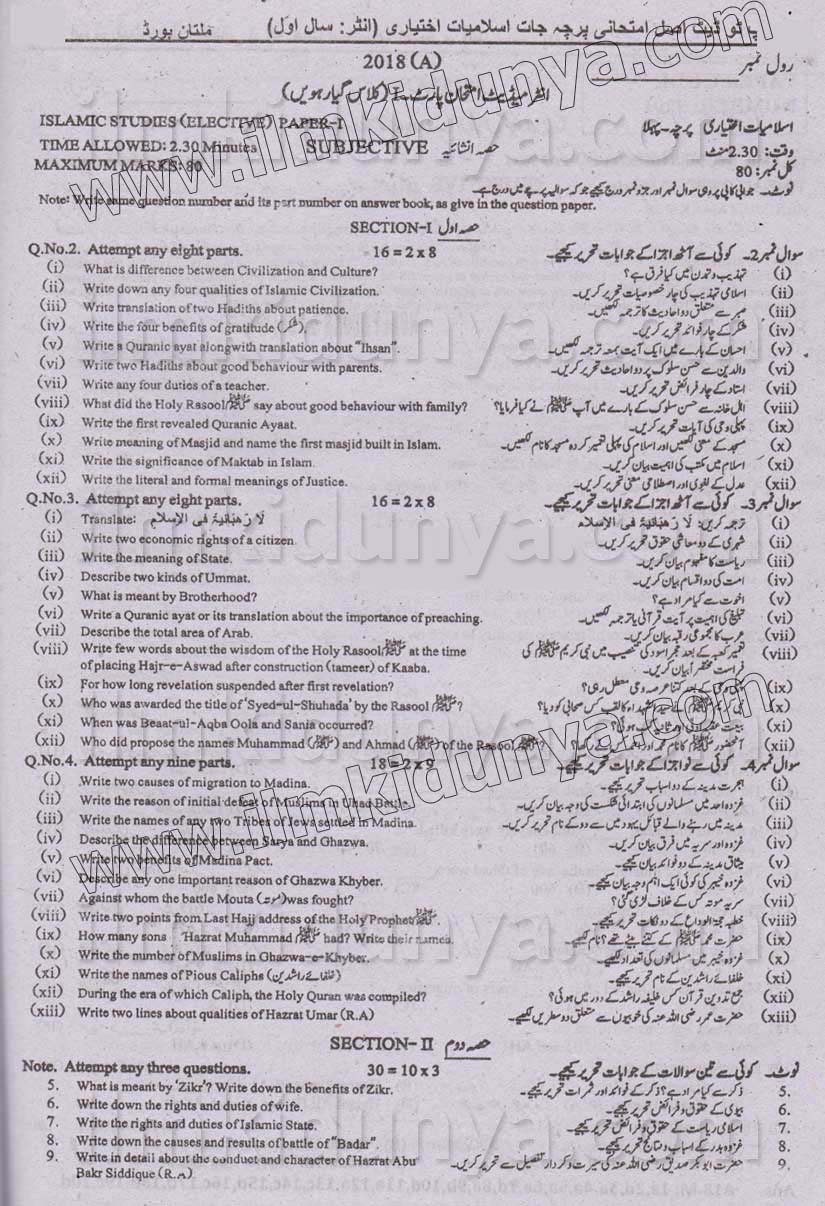 پ ٹو ڈیٹ اصل امتحانی پرچہ جات اسلامیات اختیاری (انٹر: سال اول) ملتان بورڈ
2018 (A) رول نمبر
انٹرمیڈیٹ امتحان پارٹ-I (کلاس گیارہویں)
ISLAMIC STUDIES (ELECTIVE) PAPER-I اسلامیات اختیاری پرچہ-پہلا
TIME ALLOWED: 2.30 Minutes SUBJECTIVE حصہ انشائیہ وقت: 2.30 منٹ
MAXIMUM MARKS: 80 کل نمبر: 80
نوٹ۔ جوابی کاپی پر وہی سوال نمبر اور جزو نمبر درج کیجیے جو کہ سوالیہ پرچے میں درج ہے۔
Note: Write same question number and its part number on answer book, as give in the question paper.
SECTION-I حصہ اول
Q.No.2. Attempt any eight parts. 16 = 2 x 8 سوال نمبر 2۔ کوئی سے آٹھ اجزا کے جوابات تحریر کیجیے۔
(i) What is difference between Civilization and Culture? تہذیب و تمدن میں کیا فرق ہے؟ (i)
(ii) Write down any four qualities of Islamic Civilization. اسلامی تہذیب کی چار خصوصیات تحریر کریں۔ (ii)
(iii) Write translation of two Hadiths about patience. صبر سے متعلق دو احادیث کا ترجمہ لکھیں۔ (iii)
(iv) Write the four benefits of gratitude (شکر). شکر کے چار فوائد تحریر کریں۔ (iv)
(v) Write a Quranic ayat alongwith translation about "Ihsan". احسان کے بارے میں ایک آیت بمعہ ترجمہ لکھیں۔ (v)
(vi) Write two Hadiths about good behaviour with parents. والدین سے حسن سلوک پر دو احادیث تحریر کریں۔ (vi)
(vii) Write any four duties of a teacher. استاد کے چار فرائض تحریر کریں۔ (vii)
(viii) What did the Holy Rasool ﷺ say about good behaviour with family? اہل خانہ سے حسن سلوک کے بارے میں آپ ﷺ نے کیا فرمایا؟ (viii)
(ix) Write the first revealed Quranic Ayaat. پہلی وحی کی آیات تحریر کریں۔ (ix)
(x) Write meaning of Masjid and name the first masjid built in Islam. مسجد کے معنی لکھیں اور اسلام کی پہلی تعمیر کردہ مسجد کا نام لکھیں۔ (x)
(xi) Write the significance of Maktab in Islam. اسلام میں مکتب کی اہمیت بیان کریں۔ (xi)
(xii) Write the literal and formal meanings of Justice. عدل کے لغوی اور اصطلاحی معنی تحریر کریں۔ (xii)
Q.No.3. Attempt any eight parts. 16 = 2 x 8 سوال نمبر 3۔ کوئی سے آٹھ اجزا کے جوابات تحریر کیجیے۔
(i) Translate: لَا رَهْبَانِيَّةَ فِى الْإِسْلَامِ ترجمہ کریں: لَا رَهْبَانِيَّةَ فِى الْإِسْلَامِ (i)
(ii) Write two economic rights of a citizen. شہری کے دو معاشی حقوق تحریر کریں۔ (ii)
(iii) Write the meaning of State. ریاست کا مفہوم بیان کریں۔ (iii)
(iv) Describe two kinds of Ummat. امت کی دو اقسام بیان کریں۔ (iv)
(v) What is meant by Brotherhood? اخوت سے کیا مراد ہے؟ (v)
(vi) Write a Quranic ayat or its translation about the importance of preaching. تبلیغ کی اہمیت پر آیت قرآنی یا ترجمہ لکھیں۔ (vi)
(vii) Describe the total area of Arab. عرب کا مجموعی رقبہ بیان کریں۔ (vii)
(viii) Write few words about the wisdom of the Holy Rasool ﷺ at the time تعمیر کعبہ کے بعد حجر اسود کی تنصیب میں نبی کریم ﷺ کی (viii)
of placing Hajr-e-Aswad after construction (tameer) of Kaaba. فراست مختصراً بیان کریں۔
(ix) For how long revelation suspended after first revelation? پہلی وحی کے بعد کتنا عرصہ وحی معطل رہی؟ (ix)
(x) Who was awarded the title of 'Syed-ul-Shuhada' by the Rasool ﷺ? نبی کریم ﷺ نے سید الشہداء کا لقب کس صحابی کو دیا؟ (x)
(xi) When was Beaat-ul-Aqba Oola and Sania occurred? بیعت عقبہ اولیٰ اور ثانیہ کب ہوئی؟ (xi)
(xii) Who did propose the names Muhammad (ﷺ) and Ahmad (ﷺ) of the Rasool ﷺ? آنحضور ﷺ کا نام محمد اور احمد کس نے رکھا؟ (xii)
Q.No.4. Attempt any nine parts. 18 = 2 x 9 سوال نمبر 4۔ کوئی سے نو اجزا کے جوابات تحریر کیجیے۔
(i) Write two causes of migration to Madina. ہجرت مدینہ کے دو اسباب تحریر کیجیے۔ (i)
(ii) Write the reason of initial defeat of Muslims in Uhad Battle. غزوہ احد میں مسلمانوں کی ابتدائی شکست کی وجہ بیان کریں۔ (ii)
(iii) Write the names of any two Tribes of Jews settled in Madina. مدینہ میں رہنے والے قبائل یہود میں سے دو کے نام تحریر کریں۔ (iii)
(iv) Describe the difference between Sarya and Ghazwa. غزوہ اور سریہ میں فرق بیان کریں۔ (iv)
(v) Write two benefits of Madina Pact. میثاق مدینہ کے دو فوائد بیان کیجیے۔ (v)
(vi) Describe any one important reason of Ghazwa Khyber. غزوہ خیبر کی کوئی ایک اہم وجہ بیان کیجیے۔ (vi)
(vii) Against whom the battle Mouta (موتہ) was fought? سریہ موتہ کس کے خلاف لڑی گئی؟ (vii)
(viii) Write two points from Last Hajj address of the Holy Prophet ﷺ. خطبہ حجۃ الوداع کے دو نکات تحریر کیجیے۔ (viii)
(ix) How many sons Hazrat Muhammad ﷺ had? Write their names. حضرت محمد ﷺ کے کتنے بیٹے تھے؟ نام لکھیے۔ (ix)
(x) Write the number of Muslims in Ghazwa-e-Khyber. غزوہ خیبر میں مسلمانوں کی تعداد لکھیے۔ (x)
(xi) Write the names of Pious Caliphs (خلفائے راشدین) خلفائے راشدین کے نام تحریر کیجیے۔ (xi)
(xii) During the era of which Caliph, the Holy Quran was compiled? جمع تدوین قرآن کس خلیفہ راشد کے دور میں ہوئی؟ (xii)
(xiii) Write two lines about qualities of Hazrat Umar (R.A) حضرت عمر رضی اللہ عنہ کی خوبیوں سے متعلق دو سطریں لکھیے۔ (xiii)
SECTION- II حصہ دوم
Note. Attempt any three questions. 30 = 10 x 3 نوٹ۔ کوئی سے تین سوالات کے جوابات تحریر کیجیے۔
5. What is meant by 'Zikr'? Write down the benefits of Zikr. ذکر سے کیا مراد ہے؟ ذکر کے فوائد اور ثمرات تحریر کیجیے۔ 5.
6. Write down the rights and duties of wife. بیوی کے حقوق و فرائض تحریر کیجیے۔ 6.
7. Write the rights and duties of Islamic State. اسلامی ریاست کے حقوق و فرائض تحریر کیجیے۔ 7.
8. Write down the causes and results of battle of "Badar". غزوہ بدر کے اسباب و نتائج تحریر کیجیے۔ 8.
9. Write in detail about the conduct and character of Hazrat Abu حضرت ابوبکر صدیق رضی اللہ عنہ کی سیرت و کردار تفصیل سے تحریر کریں۔ 9.
Bakr Siddique (R.A)
www.ilmkidunya.com